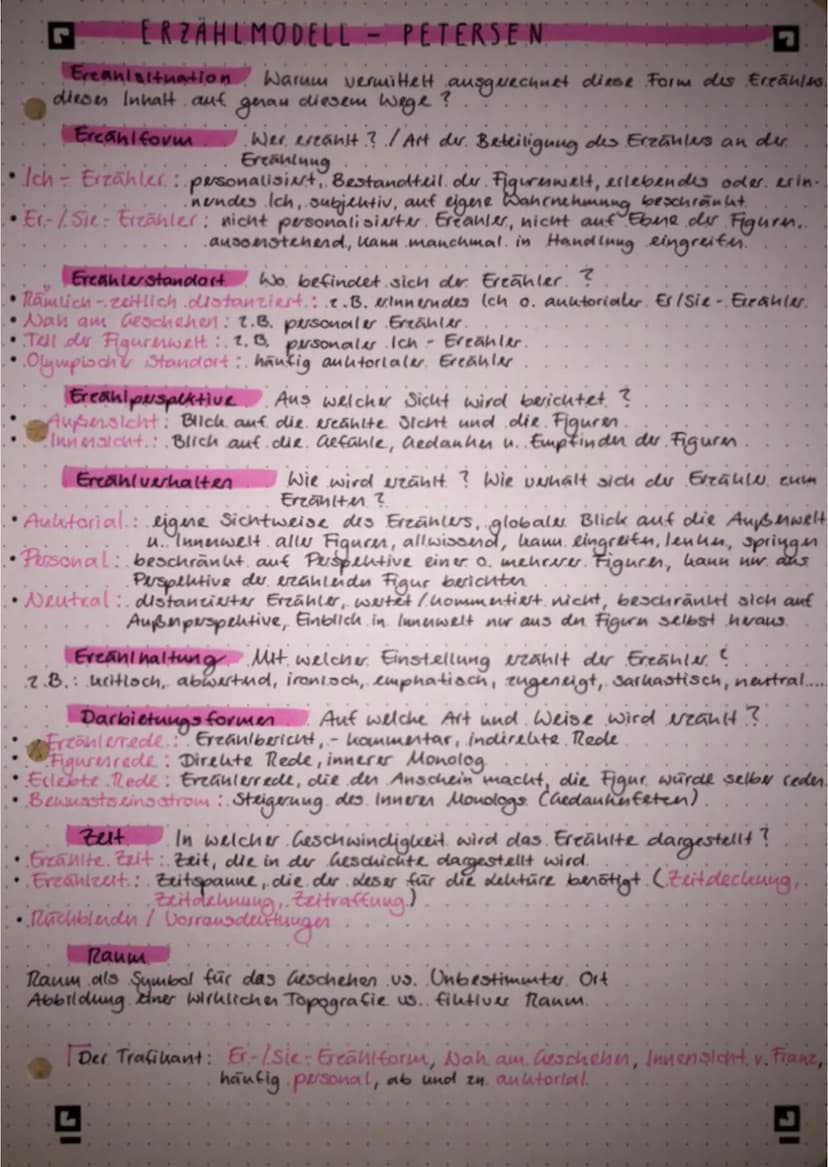 ERZÄHLMODELL - PETERSEN
Erzählsituation Warum vermittelt ausgerechnet diese Form des Erzählens
diesen Inhalt auf genau diesem Wege?
Erzählform Wer erzählt? / Art der Beteiligung des Erzählers an der
Erzählung
• Ich-Erzähler: personalisiert, Bestandteil der Figurenwelt, erlebendes oder erin-
nerndes Ich, subjektiv, auf eigene Wahrnehmung beschränkt
• Er-/Sie-Erzähler: nicht personalisierter Erzähler, nicht auf Ebene der Figuren,
aussenstehend, kann manchmal in Handlung eingreifen
Erzählerstandort Wo befindet sich der Erzähler?
• Rämlich-zeitlich distanziert: z.B. erinnerndes Ich o. auktorialer Er/Sie-Erzähler
• Nah am Geschehen: z.B. personaler Erzähler
• Teil der Figurenwelt: z.B. personaler Ich-Erzähler
• Olympischer Standort: häufig auktorialer Erzähler
Erzählperspektive Aus welcher Sicht wird berichtet?
• Außensicht: Blick auf die erzählte Sicht und die Figuren
• Innensicht: Blick auf die Gefühle, Gedanken u. Empfinden der Figuren
Erzählverhalten Wie wird erzählt? Wie verhält sich der Erzähler zum
Erzählten?
• Auktorial: eigene Sichtweise des Erzählers, globaler Blick auf die Außenwelt
u. Innenwelt aller Figuren, allwissend, kann eingreifen, lenken, springen
• Personal: beschränkt auf Perspektive einer o. mehrerer Figuren, kann nur aus
Perspektive der erzählenden Figur berichten
• Neutral: distanzierter Erzähler, wertet/kommentiert nicht, beschränkt sich auf
Außenperspektive, Einblick in Innenwelt nur aus den Figuren selbst heraus
Erzählhaltung Mit welcher Einstellung erzählt der Erzähler?
z.B.: kritisch, abwertend, ironisch, emphatisch, zugeneigt, sarkastisch, neutral....
Darbietungsformen Auf welche Art und Weise wird erzählt?
• Erzählerrede: Erzählbericht, -kommentar, indirekte Rede
• Figurenrede: Direkte Rede, innerer Monolog
• Erlebte Rede: Erzählerrede, die den Anschein macht, die Figur würde selber reden
• Bewusstseinsstrom: Steigerung des Inneren Monologs (Gedankenfetzen)
Zeit In welcher Geschwindigkeit wird das Erzählte dargestellt?
• Erzählte Zeit: Zeit, die in der Geschichte dargestellt wird
• Erzählzeit: Zeitspanne, die der Leser für die Lektüre benötigt (Zeitdeckung,
Zeitdehnung, Zeitraffung)
• Rückblenden / Vorrausdeutungen
Raum
Raum als Symbol für das Geschehen vs. Unbestimmter Ort
Abbildung einer wirklichen Topografie vs. fiktiver Raum
Der Trafikant: Er-/Sie-Erzählform, Nah am Geschehen, Innensicht v. Franz,
häufig personal, ab und zu auktorial